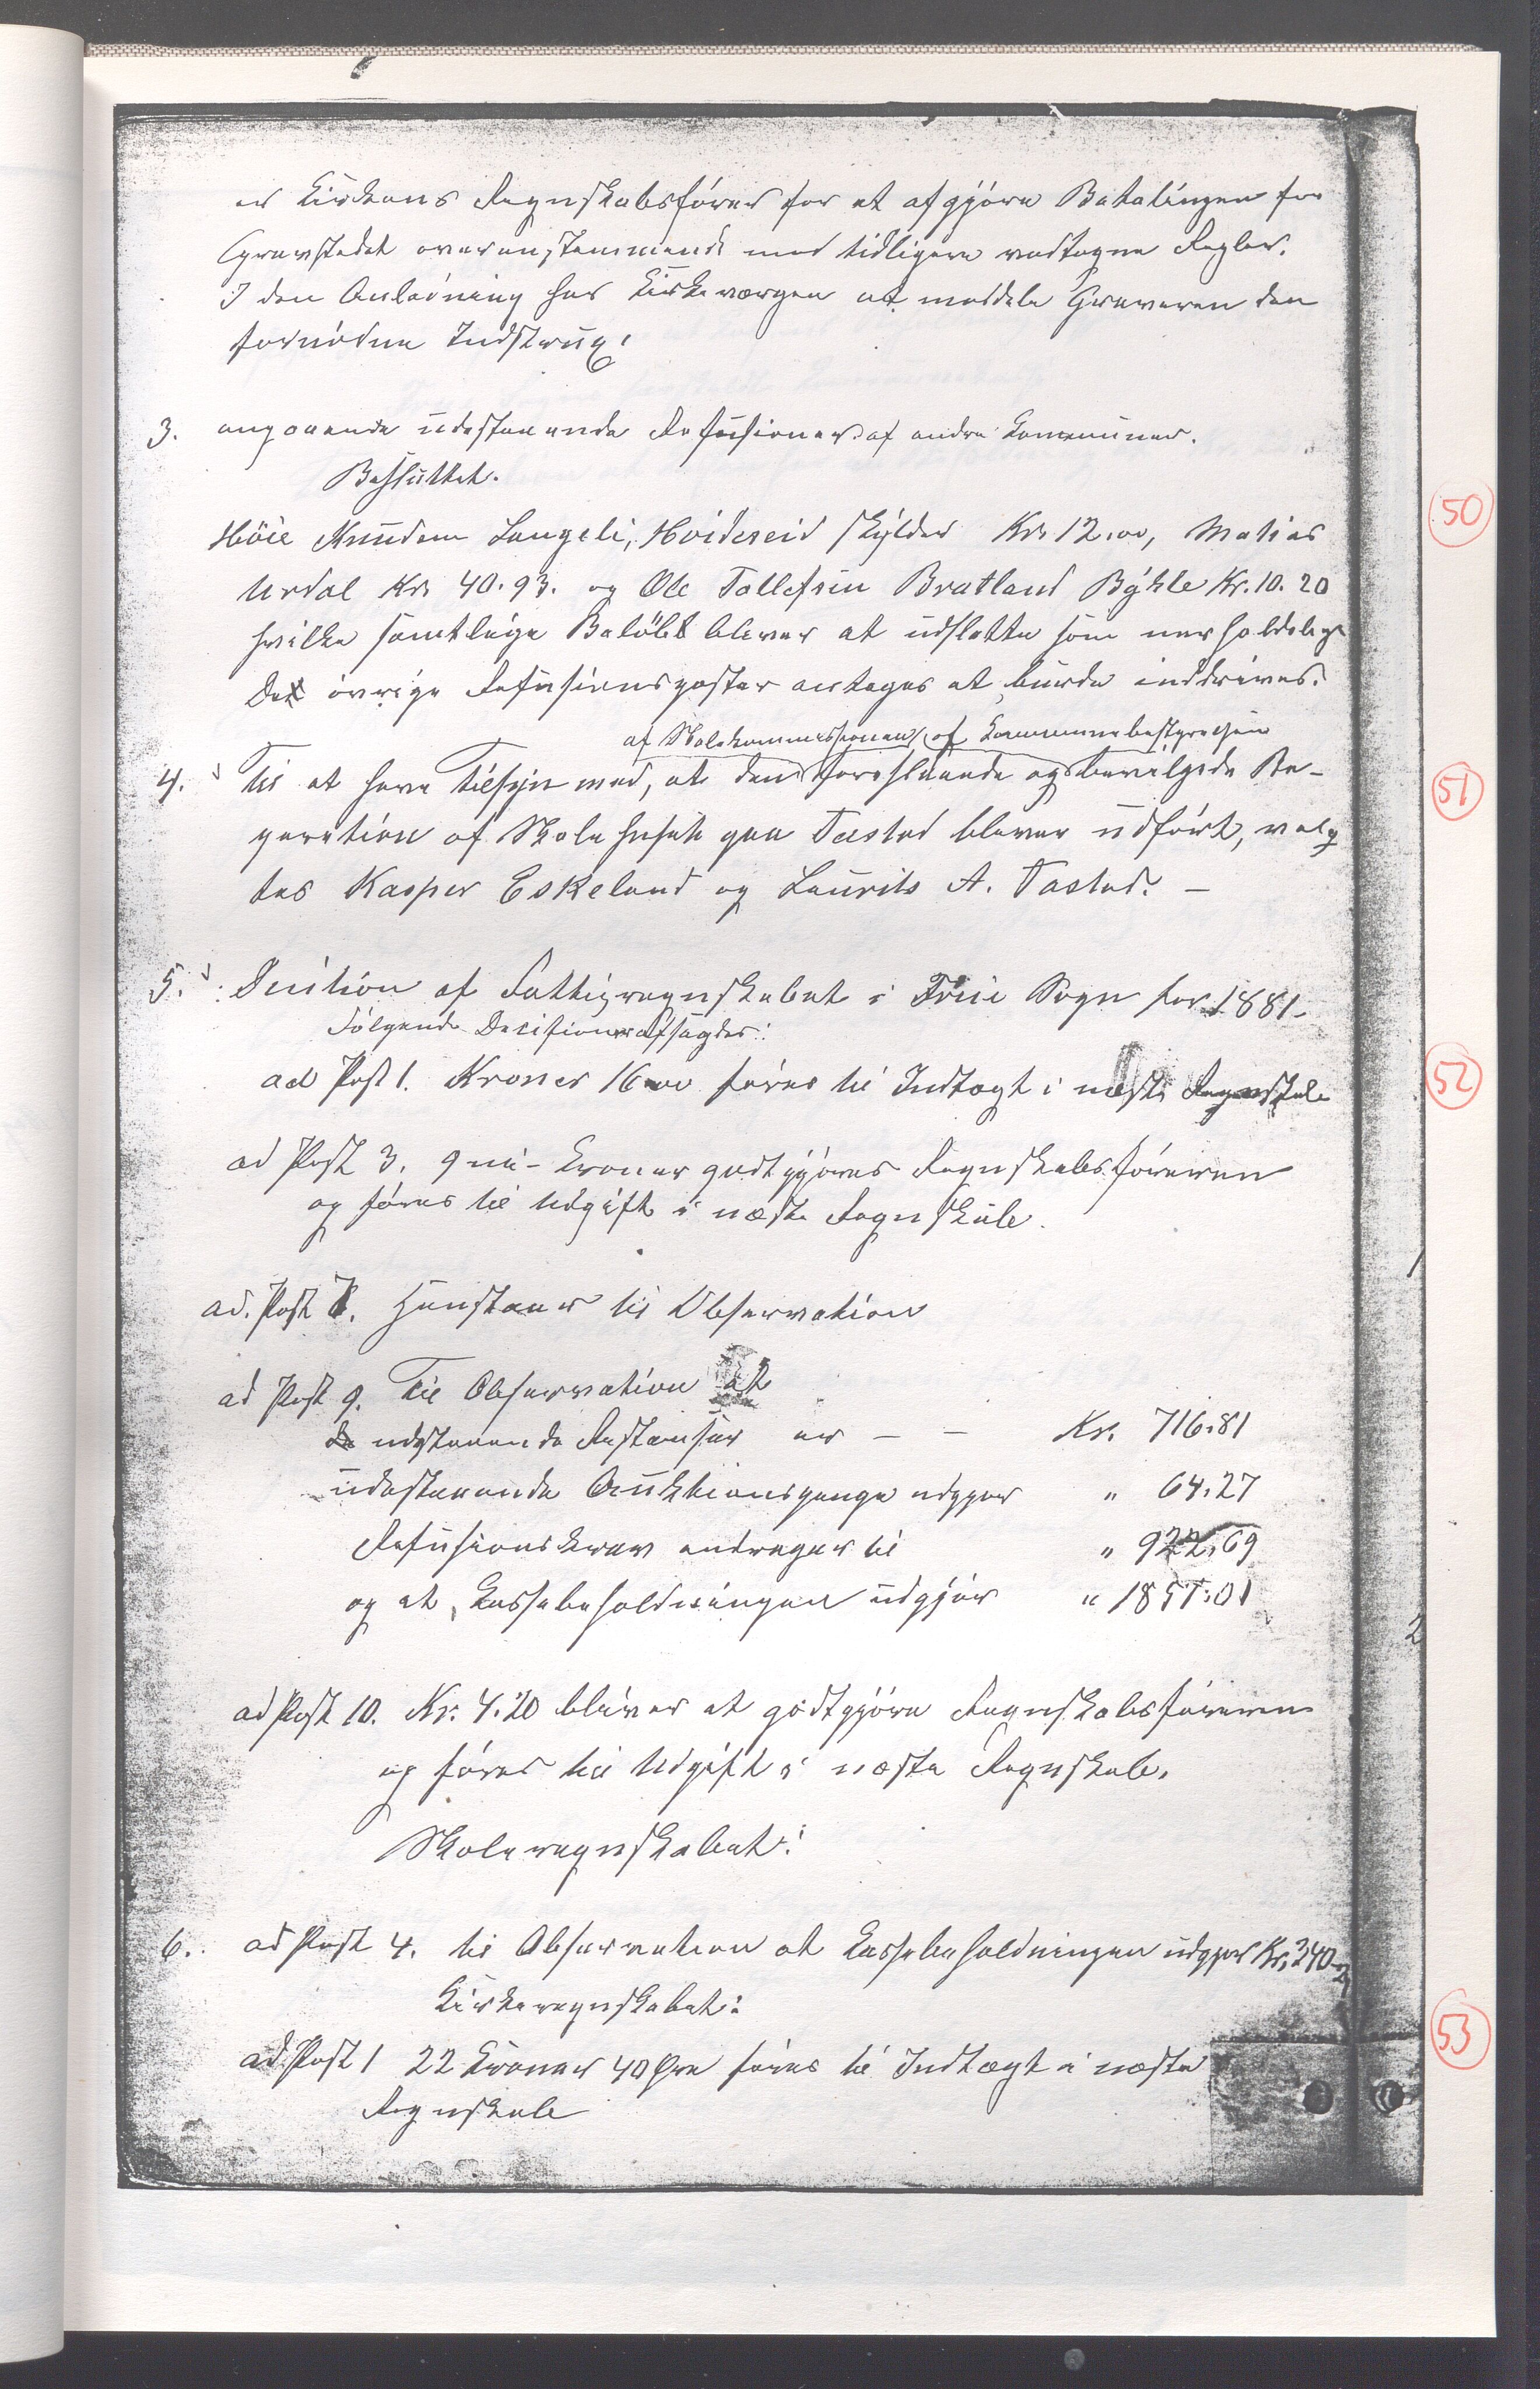 er Kirkens Regnskabsfører for at afgjøre Betalingen for
Gravstedet overensstemmende med tidligere vedtagne Regler.
I den Anledning har Kirkeværgen at meddele Graveren den
fornødne Indstrux.
3. angaaende udestaaende Refusioner af andre Kommuner.
Besluttet.
Høie Knudsen Langeli, Hvideseid skylder Kr. 12.00, Matias
Urdal Kr. 40.93. og Ole Tollefsen Bratland Bykle Kr. 10.20
hvilke samtlige Beløb bliver at udslette som uerholdelige
De øvrige Refusionsposter antages at burde inddrives.
af Skolekommissionen af Kommunebestyrelsen
4. Til at have Tilsyn med, at den foreslaaede og bevilgede Re-
peration af Skolehuset paa Tastad bliver udført, valg
tes Kasper Eskeland og Laurits A. Tastad. –
5. Decition af Fattigregnskabet i Sogn for 1881.
Følgende Decisioner afsagdes:
ad Post 1. Kroner 16.00 føres til Indtægt i næste Regnskab
ad Post 3. 9 ni - Kroner godtgjøres Regnskabsføreren
og føres til Udgift i næste Regnskab.
ad. Post 7. Henstaaer til Observation
ad Post 9. Til Observation at
udestaaende Restanser er – – Kr. 716.81
udestaaende Auktionspenge udgjør " 64.27
Refusionskrav andrager til " 922.69
og at Kassebeholdningen udgjør " 1857.01
ad Post 10. Kr. 4.20 bliver at godtgjøre Regnskabsføreren
og føres til Udgift i næste Regnskab.
Skoleregnskabet:
6. ad Post 4. til Observation at Kassebeholdningen udgjør Kr. 340
Kirkeregnskabet:
ad Post 1 22 Kroner 40 Øre føres til Indtægt i næste
Regnskab
50
51
52
53